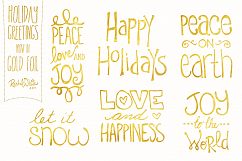 HOLIDAY
GREETINGS
NOW IN
GOLD FOIL
PEACE
LOVE AND
JOY
HAPPY
HOLIDAYS
PEACE
ON
earth
let it
SNOW
LOVE
and
HAPPINESS
JOY
to the
WORLD